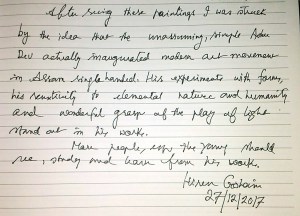 After seeing these paintings I was struck
by the idea that the unassuming, simple Adu
Dev actually inaugurated modern art movement
in Assam singlehanded. His experiments with form,
his sensitivity to elemental nature and humanity
and wonderful grasp of the play of light
stand out in his work.
More people, esp the young should
see, study and learn from his work.
Hiren Gohain
27/12/2017